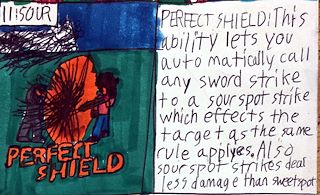 11:SOUR
PERFECT
SHIELD
PERFECT SHIELD: This
ability lets you
automatically call
any sword strike
to a sour spot strike
which effects the
target as the same
rule applyes. Also
sour spot strikes deal
less damage than sweetspot